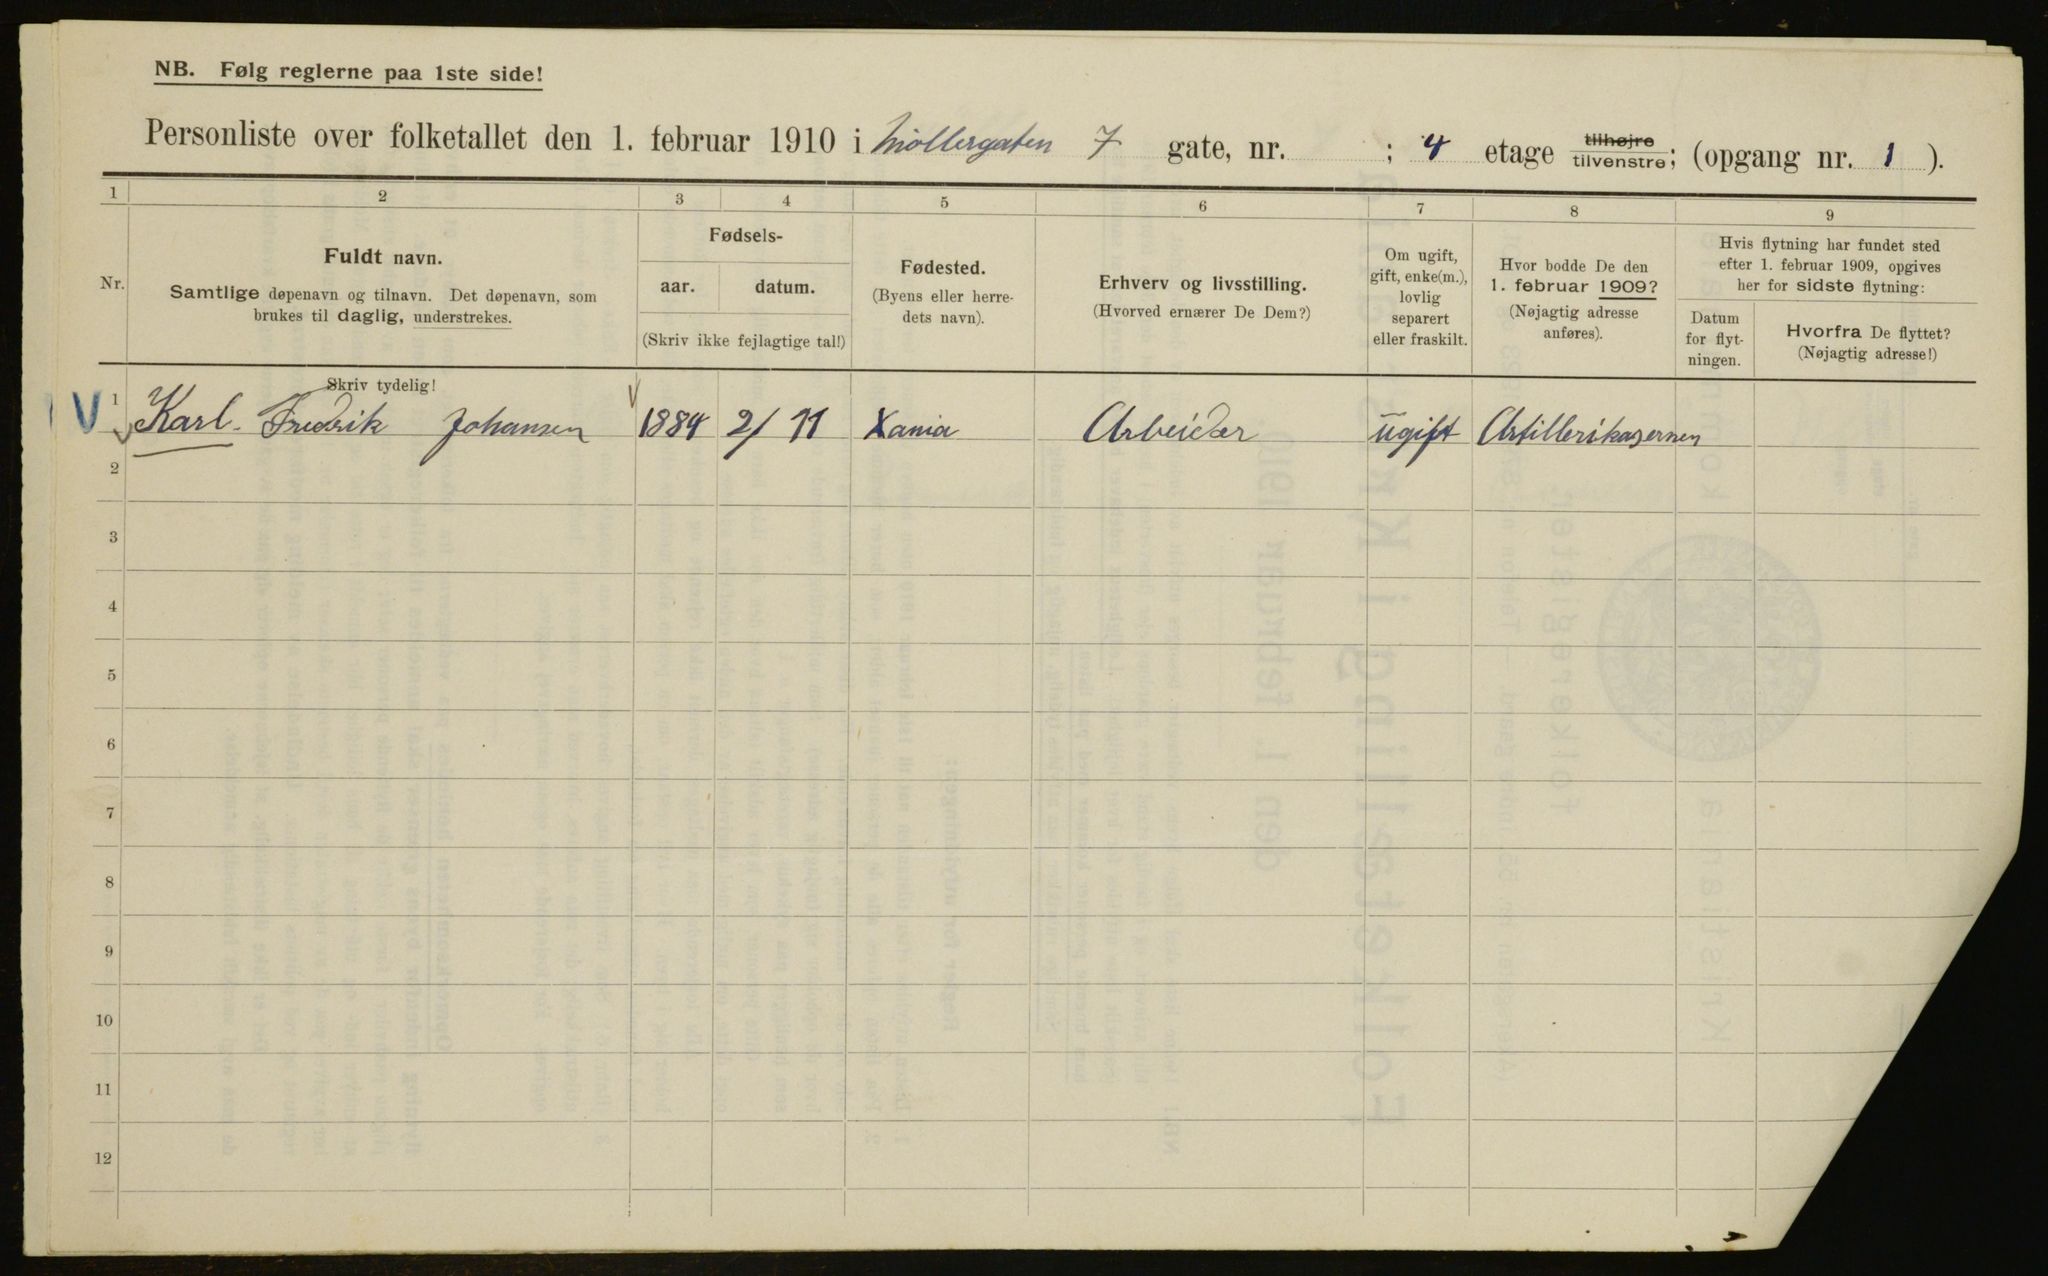 NB. Følg reglerne paa 1ste side!
Personliste over folketallet den 1. februar 1910 i Møllergaten 7 gate, nr. ; 4 etage tilhøjre tilvenstre; (opgang nr. 1 ).
1 2 3 4 5 6 7 8 9
Nr.
Fuldt navn.
Samtlige døpenavn og tilnavn. Det døpenavn, som
brukes til daglig, understrekes.
Fødsels-
aar. datum.
(Skriv ikke fejlagtige tal!)
Fødested.
(Byens eller herre-
dets navn).
Erhverv og livsstilling.
(Hvorved ernærer De Dem?)
Om ugift,
gift, enke(m.),
lovlig
separert
eller fraskilt.
Hvor bodde De den
1. februar 1909?
(Nøjagtig adresse
anføres).
Hvis flytning har fundet sted
efter 1. februar 1909, opgives
her for sidste flytning:
Datum
for flyt-
ningen.
Hvorfra De flyttet?
(Nøjagtig adresse!)
Skriv tydelig!
1 Karl. Fredrik Johansen 1884 2/11 Xania Arbeider ugift Artillerikasernen
2
3
4
5
6
7
8
9
10
11
12